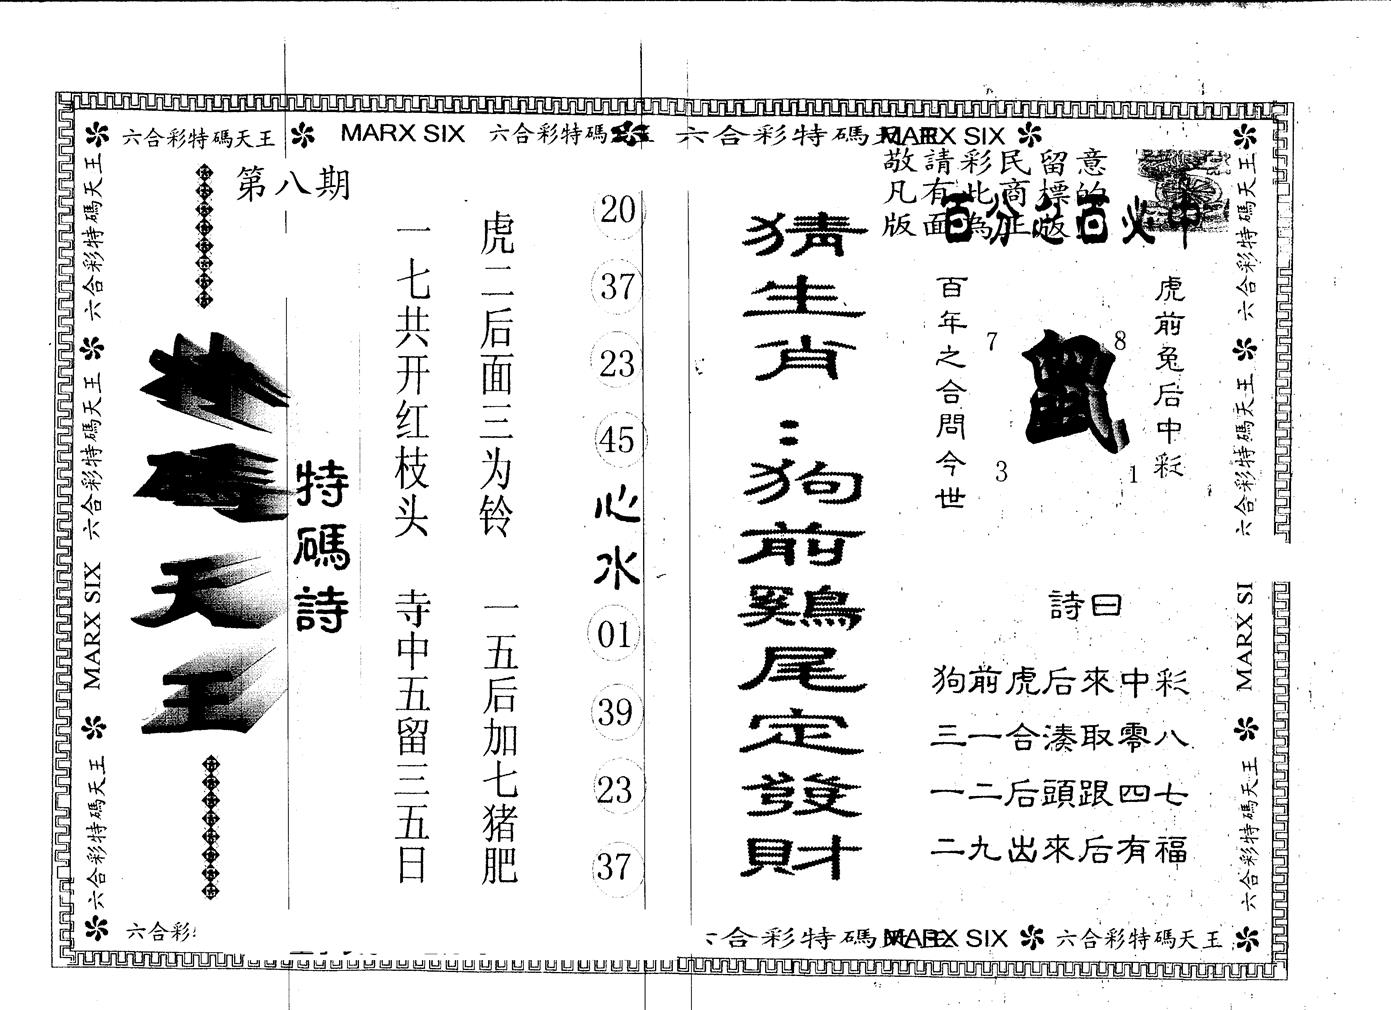 六合彩特碼天王 MARX SIX 六合彩特碼天王 六合彩特碼天王 MARX SIX
敬請彩民留意
凡有此商標的
版面為正版
百分之百必中
第八期
特碼天王
特碼詩
一七共开红枝头 寺中五留三五日
虎二后面三为铃 一五后加七猪肥
20
37
23
45
心水
01
39
23
37
猜生肖:狗前鷄尾定發財
百年之合問今世
7
8
鼠
3
1
虎前兔后中彩
詩曰
狗前虎后來中彩
三一合湊取零八
一二后頭跟四七
二九出來后有福
六合彩特碼天王 六合彩特碼天王 MARX SIX 六合彩特碼天王
六合彩特碼天王 六合彩特碼天王 MARX SI 六合彩特碼天王
六合彩 合彩特碼天王 MARX SIX 六合彩特碼天王